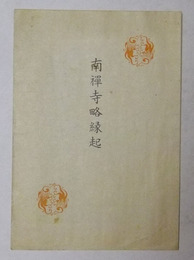 南禪寺略縁起